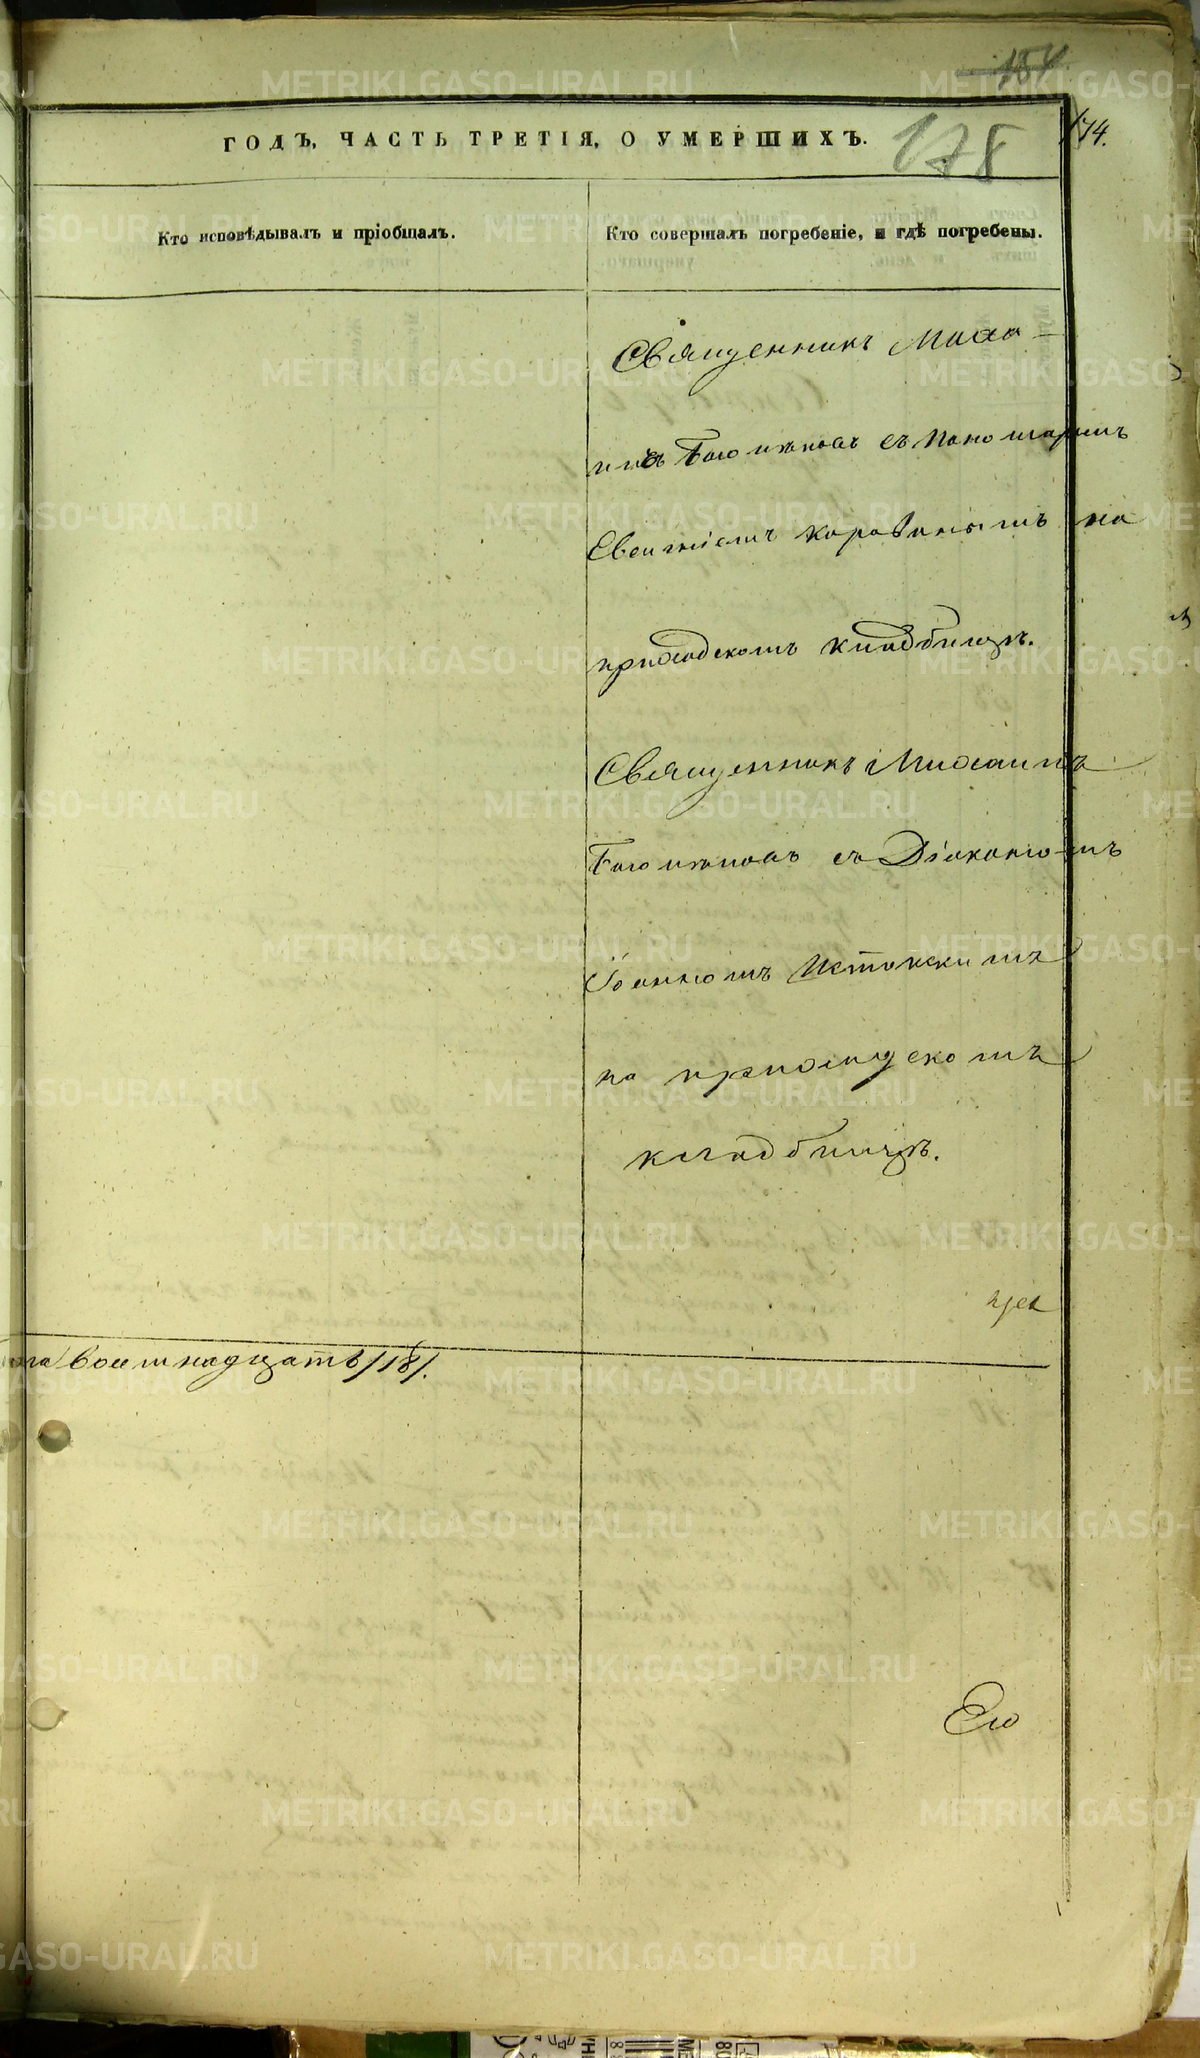 154
ГОДЪ, ЧАСТЬ ТРЕТІЯ, О УМЕРШИХЪ.
178
174.
Кто исповѣдывалъ и пріобщалъ.
Кто совершалъ погребеніе, и гдѣ погребены.
Священникъ Миха-
илъ съ Пономаремъ
Евгеніемъ на
приходскомъ кладбищѣ.
Священникъ Михаилъ
съ Діакономъ
Іоанномъ Истокскимъ
на приходскомъ
кладбищѣ.
восемнадцать /18/.
Его
METRIKI.GASO-URAL.RU